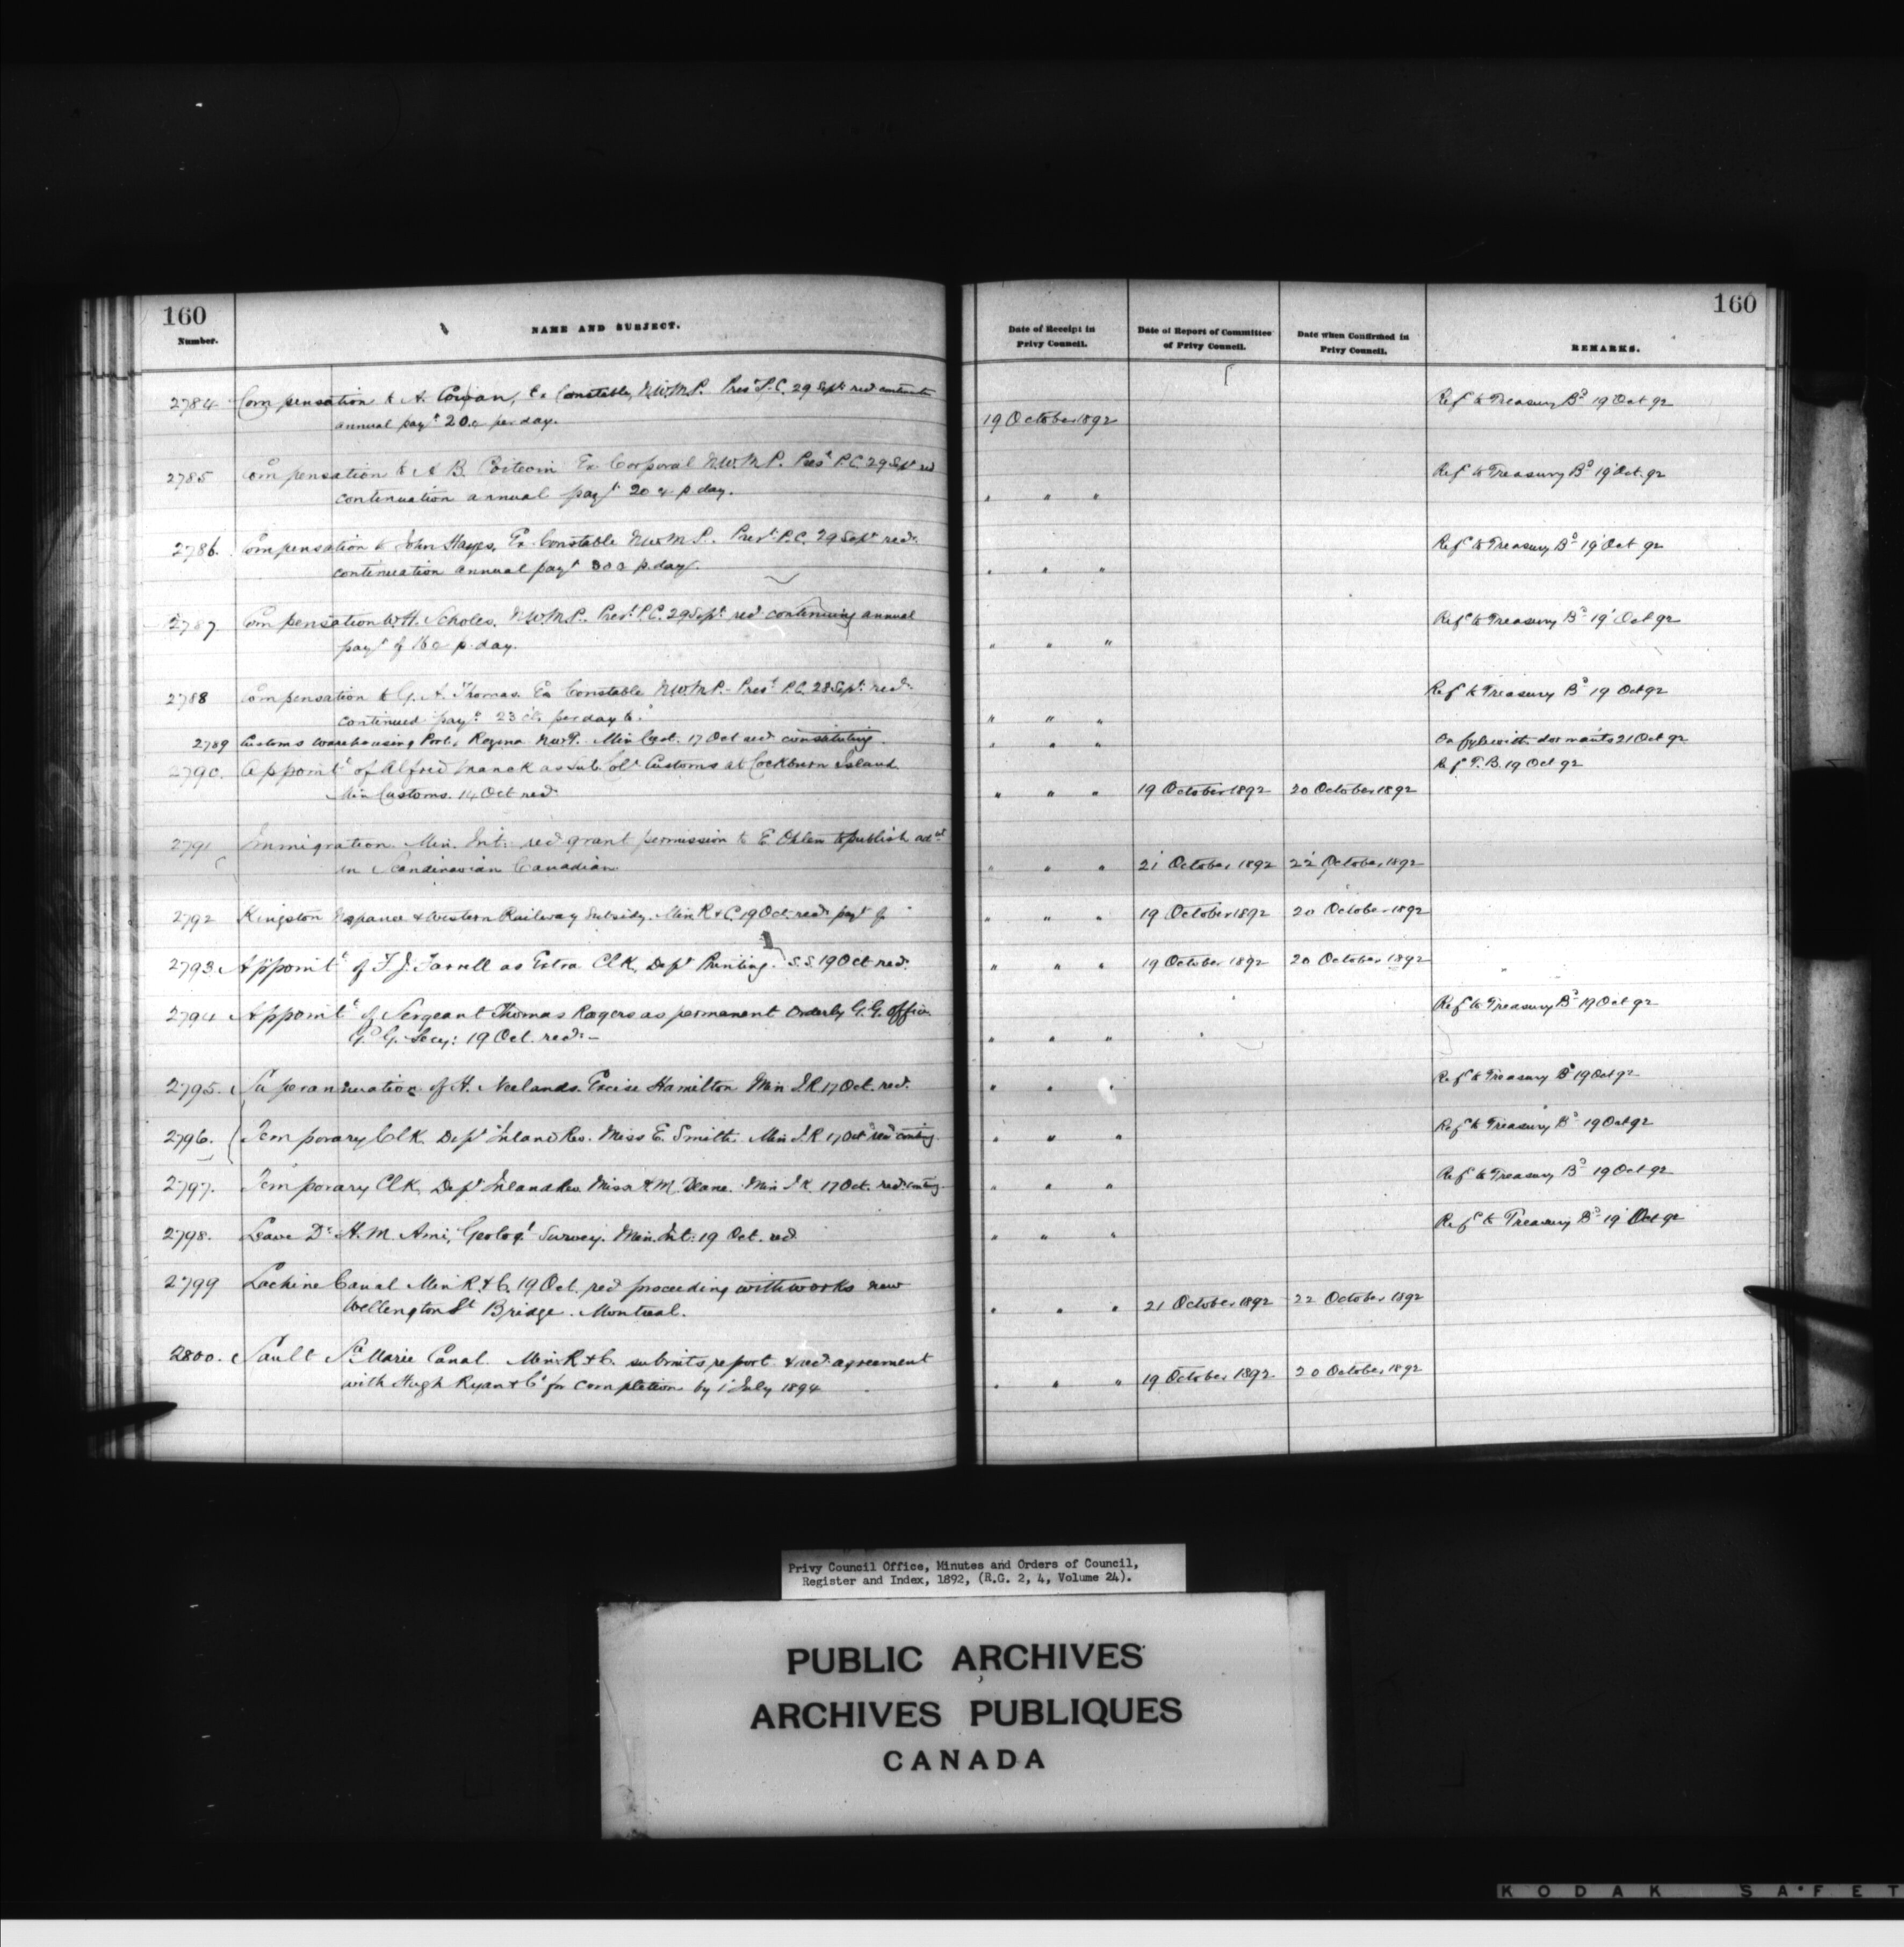 160
Number.
NAME AND SUBJECT.
Date of Receipt in
Privy Council.
Date of Report of Committee
of Privy Council.
Date when Confirmed in
Privy Council.
REMARKS.
160
2784 Compensation to A. Cowan, Ex Constable, N.W.M.P. Prest P.C. 29 Sept recd
annual payt 20c per day. 19 October 1892 Refd to Treasury Bd 19 Oct 92
2785 Compensation to A B. Poitevin Ex Corporal N.W.M.P. Prest P.C. 29 Sept
continuation annual payt 20 c p day. " " " Refd to Treasury Bd 19 Oct. 92
2786. Compensation to John Hayes, Ex. Constable N.W.M.P. Prest P.C. 29 Sept recd
continuation annual payt p. day. " " " Refd to Treasury Bd 19 Oct 92
2787. Compensation W.H. Scholes, N.W.M.P. Prest P.C. 29 Sept. recd continuing annual
payt of p. day. " " " Refd to Treasury Bd 19 Oct 92
2788 Compensation to G. A. Thomas. Ex Constable N.W.M.P. Prest P.C. 28 Sept. recd
continued payt 23 cts. per day to. " " " Refd to Treasury Bd 19 Oct 92
2789 Customs Warehousing Port, Regina N.W.T. Min Cust. 17 Oct recd constituting. " " " On fyle with dormants 21 Oct 92
2790. Appointt of Alfred as Sub. Colr Customs at Cockburn Island Ref T.B. 19 Oct 92
Min Customs. 14 Oct recd " " " 19 October 1892 20 October 1892
2791 Immigration. Min. Int: recd grant permission to E. Ohlen to publish advt
in Scandinavian Canadian " " " 21 October 1892 22 October 1892
2792 Kingston Napanee & Western Railway Subsidy. Min. R & C. 19 Oct. recd payt of " " " 19 October 1892 20 October 1892
2793. Appointt of F. J. Farrell as Extra Clk, Dept Printing. S.S. 19 Oct recd. " " " 19 October 1892 20 October 1892
2794 Appointt of Sergeant Thomas Rogers as permanent orderly G.G. Office
G. G. Secy: 19 Oct. recd. " " " Refd to Treasury Bd 19 Oct 92
2795. Superannuation of H. Neelands. Excise Hamilton Min I.R. 17 Oct. recd. " " " Refd to Treasury Bd 19 Oct 92
2796. Temporary Clk. Dept Inland Rev. Miss E. Smith. Min I.R 17 Oct recd conting. " " " Refd to Treasury Bd 19 Oct 92
2797. Temporary Clk, Dept Inland Rev. Miss K M Deane. Min I.R. 17 Oct. recd conting. " " " Refd to Treasury Bd 19 Oct 92
2798. Leave Dr H. M. Ami, Geologl Survey. Min. Int: 19 Oct. recd " " " Refd to Treasury Bd 19 Oct 92
2799 Lachine Canal Min R. & C. 19 Oct. recd proceeding with works new
Wellington St Bridge. Montreal. " " " 21 October 1892 22 October 1892
2800. Sault Ste Marie Canal. Min R & C. submits report & recd agreement
with Hugh Ryan & Co for completion by 1 July 1894 " " " 19 October 1892 20 October 1892
Privy Council Office, Minutes and Orders of Council,
Register and Index, 1892, (R.G. 2, 4, Volume 24).
PUBLIC ARCHIVES
ARCHIVES PUBLIQUES
CANADA
KODAK SAFET